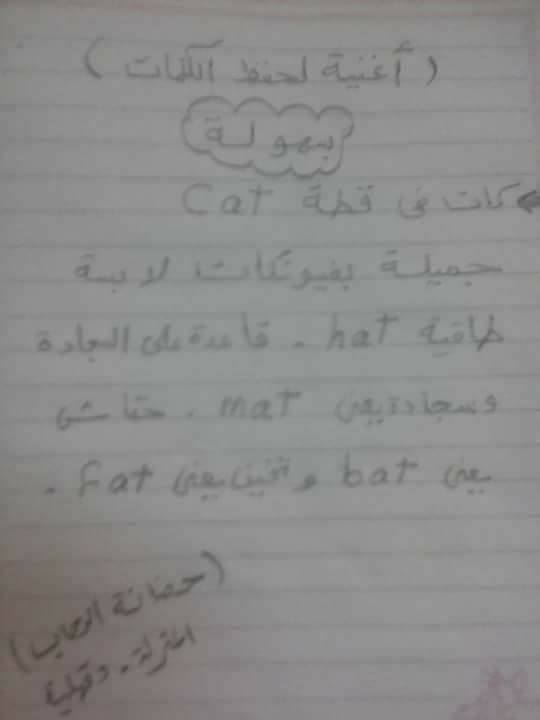 (أغنية لحفظ الكلمات)
بسهولة
كات فى قطة Cat
جميلة بفيونكات لابسة
طاقية hat . قاعدة على السجادة
وسجادة يعنى mat . خفاش
يعنى bat وتخين يعنى Fat .
(حضانة الرحاب)
المنزلة - دقهلية